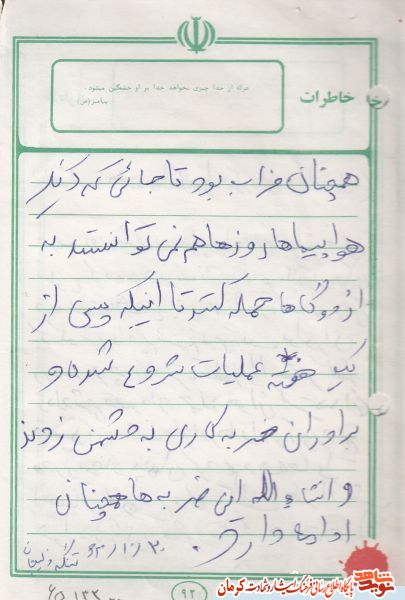 هرکه از خدا چیزی نخواهد خدا بر او خشمگین میشود.
پیامبر (ص)
خاطرات
همچنان خراب بود تا جائی که دیگر
هواپیماها روزها هم نمی توانستند به
اردوگاها حمله کنند تا اینکه پس از
یک هفته عملیات شروع شده و
برادران ضربه کاری به دشمن زدند
و انشاء الله این ضربه ها همچنان
ادامه دارد.
۶۲/۱/۳۰
۹۲
شاهد
نوید
پایگاه اطلاع رسانی فرهنگ ایثار و شهادت کرمان